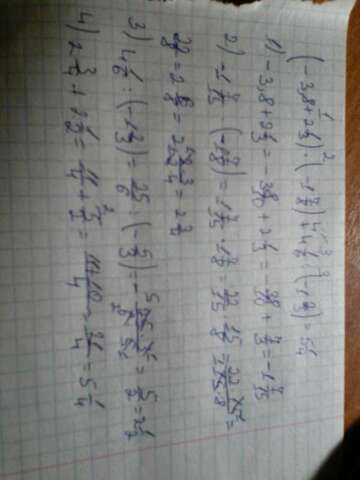 (-3,8+2 1/3) · (-1 7/8) + 4 1/6 : (-1 2/3) = 5 1/4
1) -3,8+2 1/3 = -38/10 + 2 1/3 = -38/10 + 7/3 = -1 7/15
2) -1 7/15 · (-1 7/8) = 1 7/15 · 1 7/8 = 22/15 · 15/8 = 22·15/15·8 =
22/8 = 2 6/8 = 2 2·3/2·4 = 2 3/4
3) 4 1/6 : (-1 2/3) = 25/6 : (-5/3) = - 25·3/6·5 = 5/2 = 2 1/2
4) 2 3/4 + 2 1/2 = 11/4 + 5/2 = 11+10/4 = 21/4 = 5 1/4